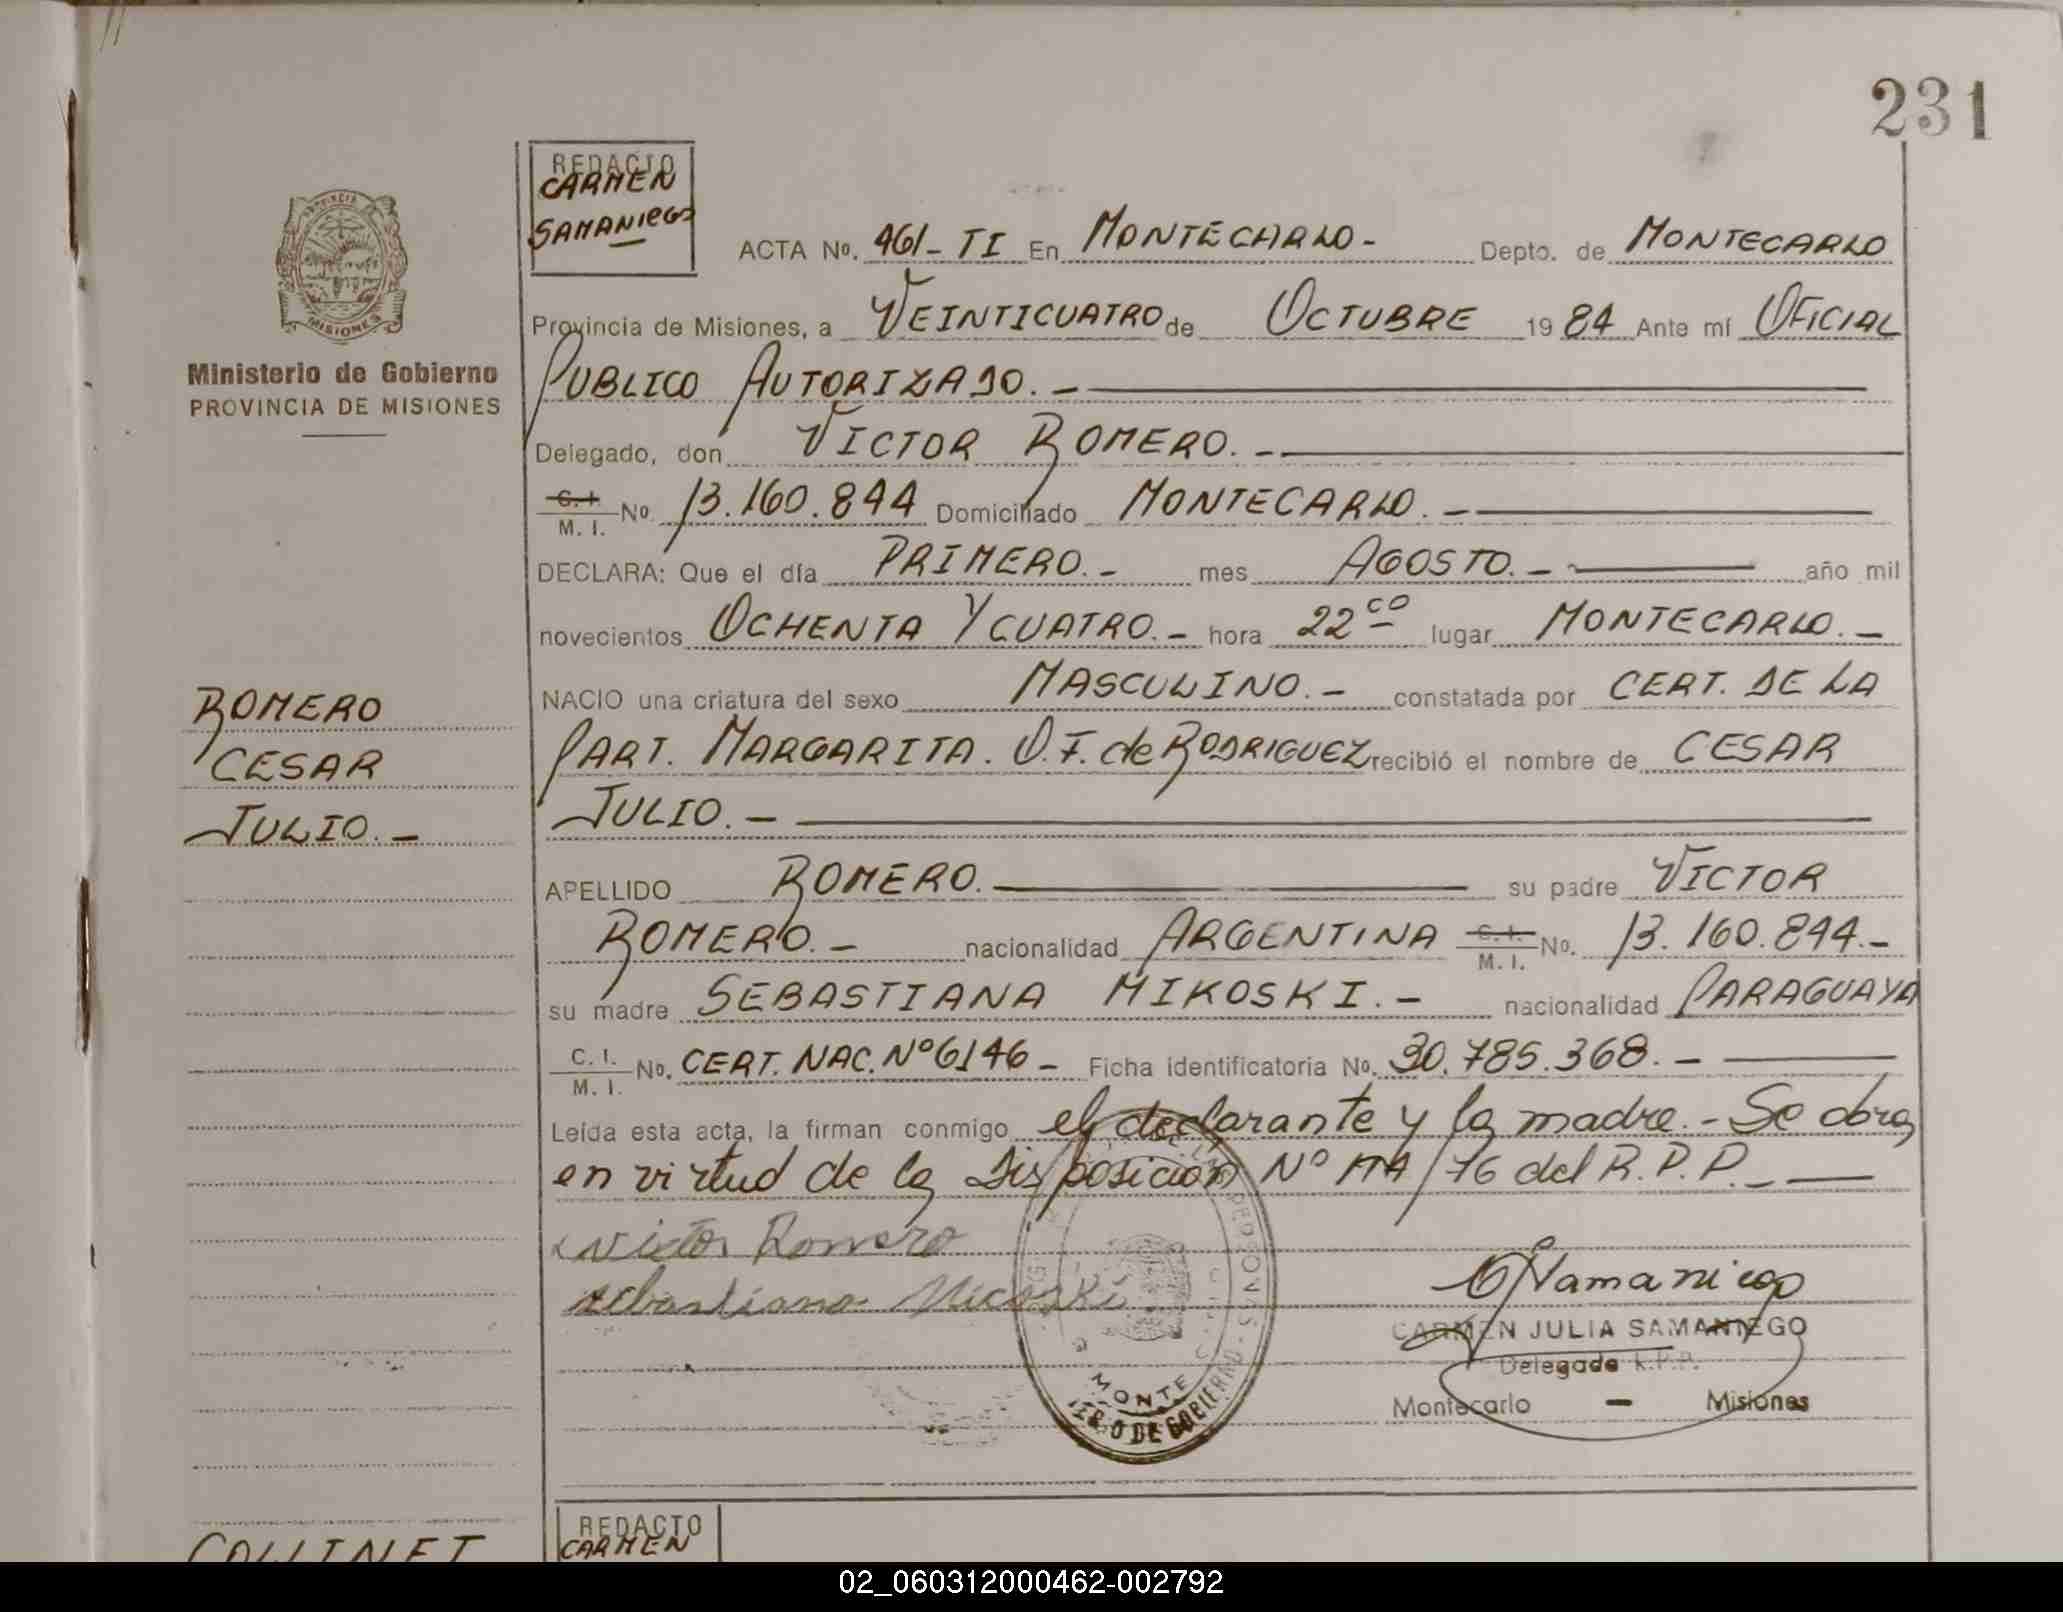 231
REDACTO
CARMEN
SAMANIEGO
ACTA No. 461-TI En MONTECARLO.- Depto. de MONTECARLO
Provincia de Misiones, a VEINTICUATRO de OCTUBRE 1984 Ante mí OFICIAL
PUBLICO AUTORIZADO.-
Delegado, don VICTOR ROMERO.-
C. I.
M. I. No. 13.160.844 Domiciliado MONTECARLO.-
DECLARA: Que el día PRIMERO.- mes AGOSTO.- año mil
novecientos OCHENTA Y CUATRO.- hora 22 co lugar MONTECARLO.-
NACIO una criatura del sexo MASCULINO.- constatada por CERT. DE LA
PART. MARGARITA. O.F. de RODRIGUEZ recibió el nombre de CESAR
JULIO.-
APELLIDO ROMERO. su padre VICTOR
ROMERO.- nacionalidad ARGENTINA C. I. M. I. No. 13.160.844.-
su madre SEBASTIANA MIKOSKI.- nacionalidad PARAGUAYA
C. I.
M. I. No. CERT. NAC. Nº 6146- Ficha identificatoria No. 30.785.368.-
Leída esta acta, la firman conmigo el declarante y la madre.- Se obra
en virtud de la Disposición Nº /76 del R.P.P.-
Victor Romero
Sebastiana Micoski
CARMEN JULIA SAMANIEGO
Delegada R.P.P.
Montecarlo - Misiones
MONTE
DE GOBIERNO
PROVINCIA
MISIONES
Ministerio de Gobierno
PROVINCIA DE MISIONES
ROMERO
CESAR
JULIO.-
COLLINET
REDACTO
CARMEN
02_060312000462-002792